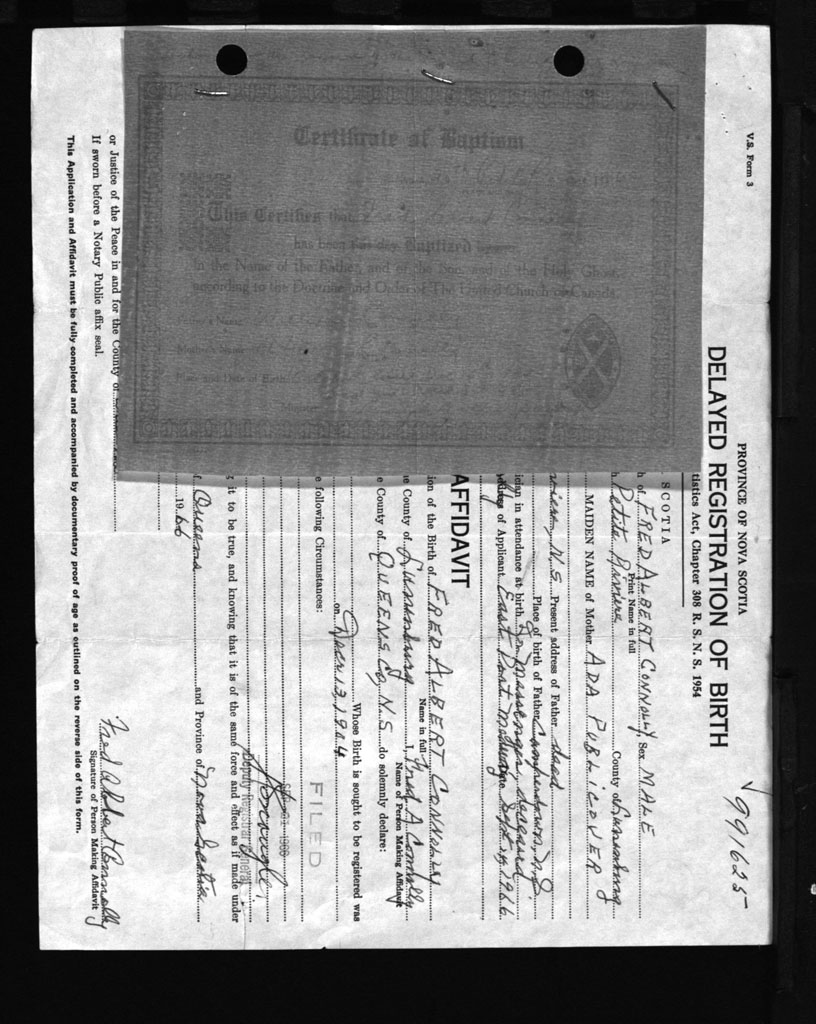 V.S. Form 3
√991625
PROVINCE OF NOVA SCOTIA
DELAYED REGISTRATION OF BIRTH
tistics Act, Chapter 308 R. S. N. S. 1954
SCOTIA
h of FRED ALBERT CONNOLLY Sex MALE
Print Name in full
h Petite Riviere County of Lunenburg
MAIDEN NAME of Mother ADA PUBLICOVER
N.S. Present address of Father dead
Place of birth of Father N.S.
ician in attendance at birth Dr. Massenger, deceased
Address of Applicant East Port Medway Sept 14, 1966
AFFIDAVIT
ion of the Birth of FRED ALBERT CONNOLLY
Name in full
e County of Lunenburg I, Fred A Connolly
Name of Person Making Affidavit
e County of QUEENS Co, N.S. do solemnly declare:
Whose Birth is sought to be registered was
on Decr 13, 1904
e following Circumstances:
FILED
1966
Deputy Registrar General
g it to be true, and knowing that it is of the same force and effect as if made under
f Queens and Province of Nova Scotia
1966
or Justice of the Peace in and for the County of
If sworn before a Notary Public affix seal.
Fred Albert Connolly
Signature of Person Making Affidavit
This Application and Affidavit must be fully completed and accompanied by documentary proof of age as outlined on the reverse side of this form.
Certificate of Baptism
This Certifies that
has been this day Baptized
In the Name of the Father, and of the Son, and of the Holy Ghost,
according to the Doctrine and Order of The United Church of Canada.